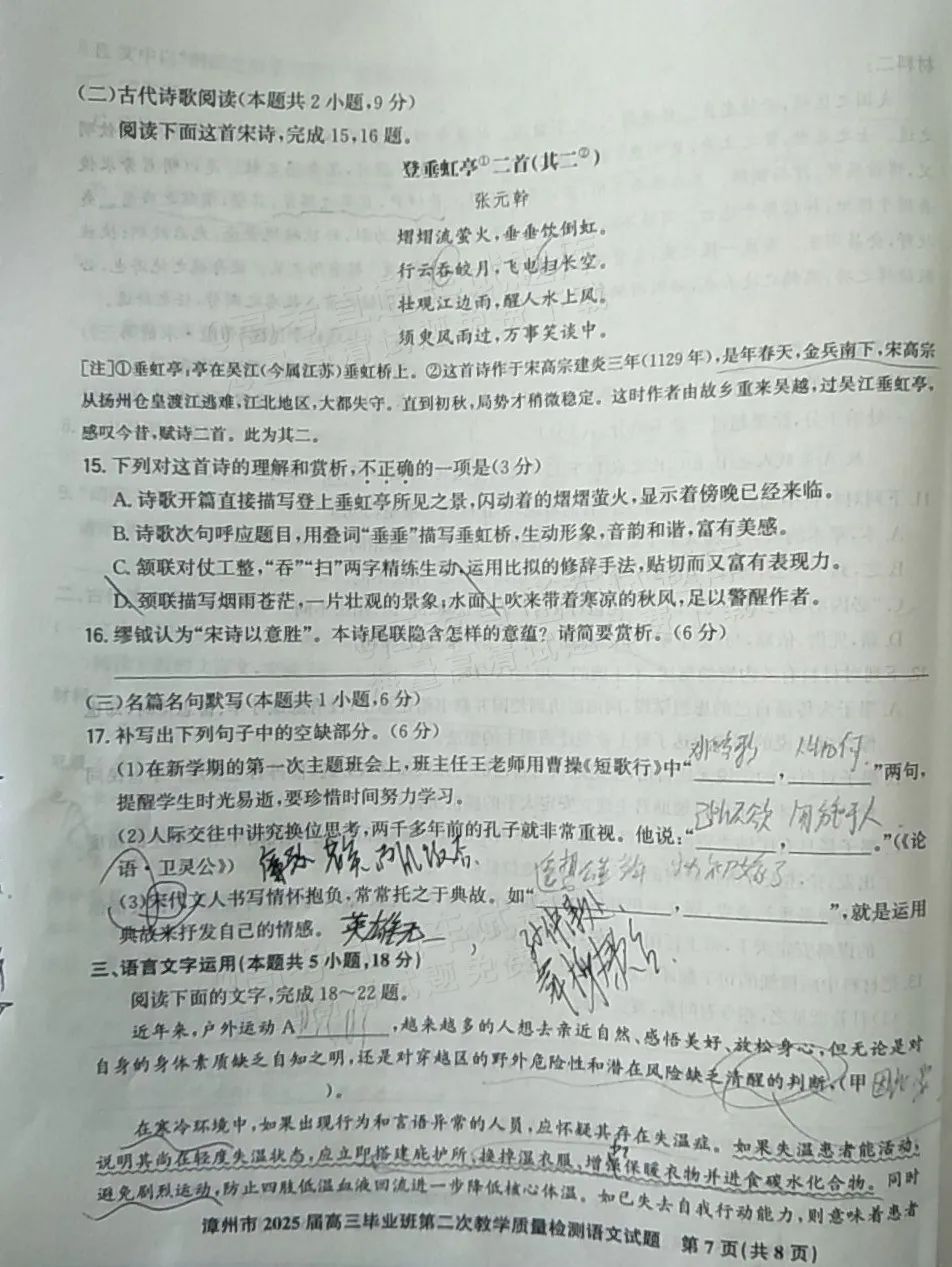 (二)古代诗歌阅读(本题共2小题,9分)
阅读下面这首宋诗,完成15,16题。
登垂虹亭①二首(其二②)
张元幹
熠熠流萤火,垂垂饮倒虹。
行云吞皎月,飞电扫长空。
壮观江边雨,醒人水上风。
须臾风雨过,万事笑谈中。
[注]①垂虹亭,亭在吴江(今属江苏)垂虹桥上。②这首诗作于宋高宗建炎三年(1129年),是年春天,金兵南下,宋高宗
从扬州仓皇渡江逃难,江北地区,大都失守。直到初秋,局势才稍微稳定。这时作者由故乡重来吴越,过吴江垂虹亭,
感叹今昔,赋诗二首。此为其二。
15.下列对这首诗的理解和赏析,不正确的一项是(3分)
A.诗歌开篇直接描写登上垂虹亭所见之景,闪动着的熠熠萤火,显示着傍晚已经来临。
B.诗歌次句呼应题目,用叠词“垂垂”描写垂虹桥,生动形象,音韵和谐,富有美感。
C.颔联对仗工整,“吞”“扫”两字精练生动,运用比拟的修辞手法,贴切而又富有表现力。
D.颈联描写烟雨苍茫,一片壮观的景象;水面上吹来带着寒凉的秋风,足以警醒作者。
16.缪钺认为“宋诗以意胜”。本诗尾联隐含怎样的意蕴?请简要赏析。(6分)
(三)名篇名句默写(本题共1小题,6分)
17.补写出下列句子中的空缺部分。(6分)
(1)在新学期的第一次主题班会上,班主任王老师用曹操《短歌行》中“ 人生几何 , ”两句,
提醒学生时光易逝,要珍惜时间努力学习。
(2)人际交往中讲究换位思考,两千多年前的孔子就非常重视。他说:“ 己所不欲 , 勿施于人 。”(《论
语·卫灵公》)
(3)宋代文人书写情怀抱负,常常托之于典故。如“ , ”,就是运用
典故来抒发自己的情感。 英雄无
三、语言文字运用(本题共5小题,18分)
阅读下面的文字,完成18~22题。
近年来,户外运动A ,越来越多的人想去亲近自然、感悟美好、放松身心,但无论是对
自身的身体素质缺乏自知之明,还是对穿越区的野外危险性和潜在风险缺乏清醒的判断,(甲
)。
在寒冷环境中,如果出现行为和言语异常的人员,应怀疑其存在失温症。如果失温患者能活动,
说明其尚在轻度失温状态,应立即搭建庇护所、换掉湿衣服、增强保暖衣物并进食碳水化合物。同时
避免剧烈运动,防止四肢低温血液回流进一步降低核心体温。如已失去自我行动能力,则意味着患者
漳州市2025届高三毕业班第二次教学质量检测语文试题 第7页(共8页)